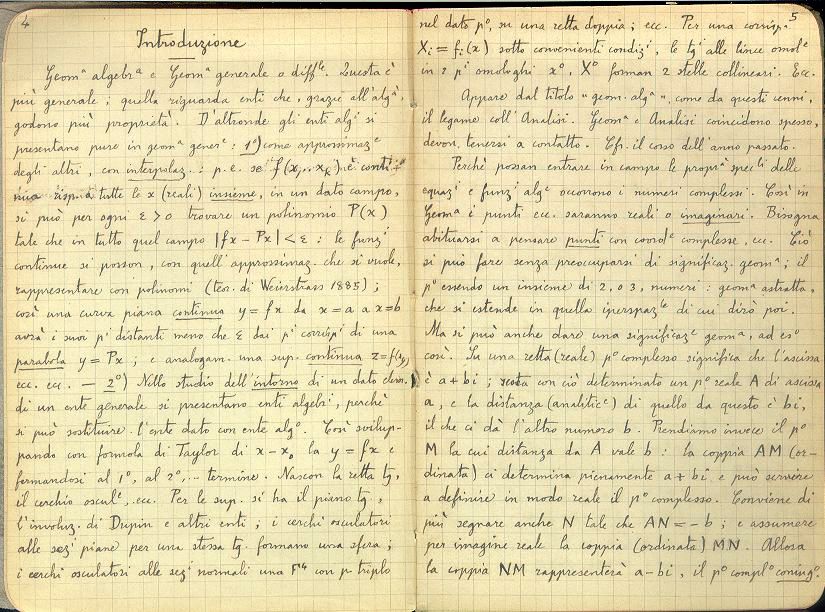 4
Introduzione
Geomᵃ algebrᵃ e Geomᵃ generale o diffˡᵉ. Questa è
più generale; quella riguarda enti che, grazie all'algᵃ,
godono più proprietà. D'altronde gli enti algⁱ si
presentano pure in geomᵃ generᵉ: 1º) come approssimazᵉ
degli altri, con interpolaz.: p. e. se f(x₁..xₖ) è conti-
nua risp. a tutte le x (reali) insieme, in un dato campo,
si può per ogni ε > 0 trovare un polinomio P(x)
tale che in tutto quel campo |fx - Px| < ε : le funzⁱ
continue si posson, con quell'approssimaz. che si vuole,
rappresentare con polinomi (teor. di Weierstrass 1885);
così una curva piana continua y = fx da x = a a x = b
avrà i suoi pⁱ distanti meno che ε dai pⁱ corrispⁱ di una
parabola y = Px ; e analogam. una sup. continua z = f(xy)
ecc. ecc. — 2º) Nello studio dell'intorno di un dato elem.
di un ente generale si presentano enti algebrⁱ, perchè
si può sostituire l'ente dato con ente algᵒ. Così svilup-
pando con formola di Taylor di x - x₀ la y = fx e
fermandosi al 1º, al 2º,.. termine. Nascon la retta tg,
il cerchio osculᵉ, ecc. Per le sup. si ha il piano tg,
l'involuz. di Dupin e altri enti; i cerchi osculatori
alle sezⁱ piane per una stessa tg. formano una sfera;
i cerchi osculatori alle sezⁱ normali una F⁴ con pº triplo
5
nel dato pº, su una retta doppia; ecc. Per una corrispᵃ
Xᵢ = fᵢ(x) sotto convenienti condizⁱ, le tgⁱ alle linee omolᵉ
in 2 pⁱ omologhi x⁰, X⁰ forman 2 stelle collineari. Ecc.
Appare dal titolo "geom. algᵃ", come da questi cenni,
il legame coll'Analisi. Geomᵃ e Analisi coincidono spesso,
devon tenersi a contatto. Cfr. il corso dell'anno passato.
Perchè possan entrare in campo le proprⁱᵃ specˡⁱ delle
equazⁱ e funzⁱ algᵉ occorrono i numeri complessi. Così in
Geomᵃ i punti ecc. saranno reali o imaginari. Bisogna
abituarsi a pensare punti con coordᵉ complesse, ecc. Ciò
si può fare senza preoccuparsi di significaz. geomᵃ; il
pº essendo un insieme di 2, o 3, numeri : geomᵃ astratta,
che si estende in quella iperspazˡᵉ di cui dirò poi.
Ma si può anche dare una significazᵉ geomᵃ, ad esº
così. Su una retta (reale) pº complesso significa che l'ascissa
è a + bi ; resta con ciò determinato un pº reale A di ascissa
a, e la distanza (analiticᵉ) di quello da questo è bi,
il che ci dà l'altro numero b. Prendiamo invece il pº
M la cui distanza da A vale b : la coppia AM (or-
dinata) ci determina pienamente a + bi e può servire
a definire in modo reale il pº complesso. Conviene di
più segnare anche N tale che AN = - b ; e assumere
per imagine reale la coppia (ordinata) MN. Allora
la coppia NM rappresenterà a - bi, il pº complº coniugº.